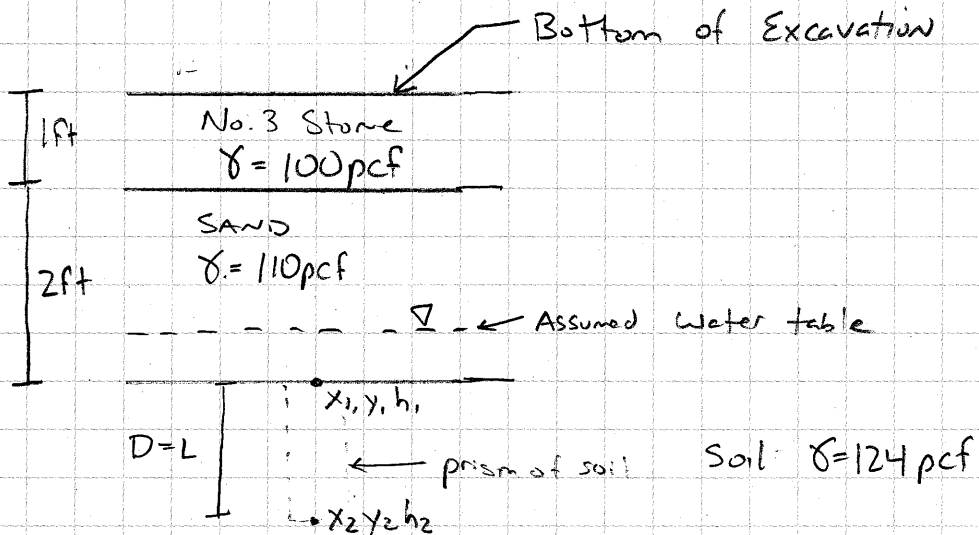 Bottom of Excavation
1ft
No. 3 Stone
γ = 100pcf
SAND
γ = 110pcf
2ft
∇ Assumed water table
x₁, y, h₁
D=L
prism of soil
Soil γ=124 pcf
x₂ y₂ h₂